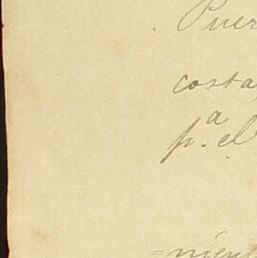 Puer
costa
p.ª el
=nient